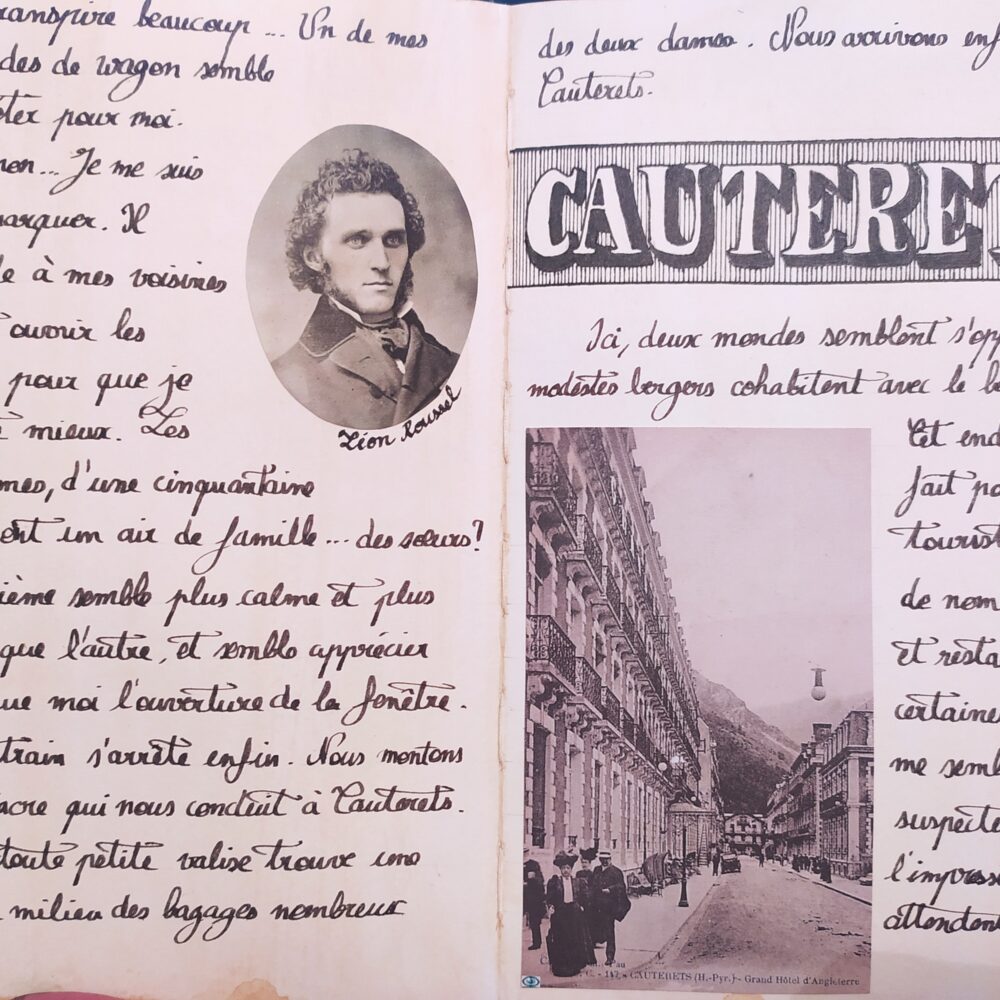 transpire beaucoup ... Un de mes
des de wagon semble
ôter pour moi.
non... Je me suis
marquer. Il
de à mes voisines
ouvrir les
pour que je
mieux. Les
mes, d'une cinquantaine
ont un air de famille ... des sœurs?
ième semble plus calme et plus
que l'autre, et semble apprécier
que moi l'ouverture de la fenêtre.
train s'arrête enfin. Nous montons
acre qui nous conduit à Cauterets.
toute petite valise trouve une
milieu des bagages nombreux
Léon Roussel
des deux dames. Nous arrivons enf
Cauterets.
CAUTERET
Ici, deux mondes semblent s'opp
modestes bergers cohabitent avec le b
Cet end
fait pa
tourist
de nom
et resta
certaine
me semb
suspecte
l'impress
attendent
147. - CAUTERETS (H.-Pyr.) - Grand Hôtel d'Angleterre